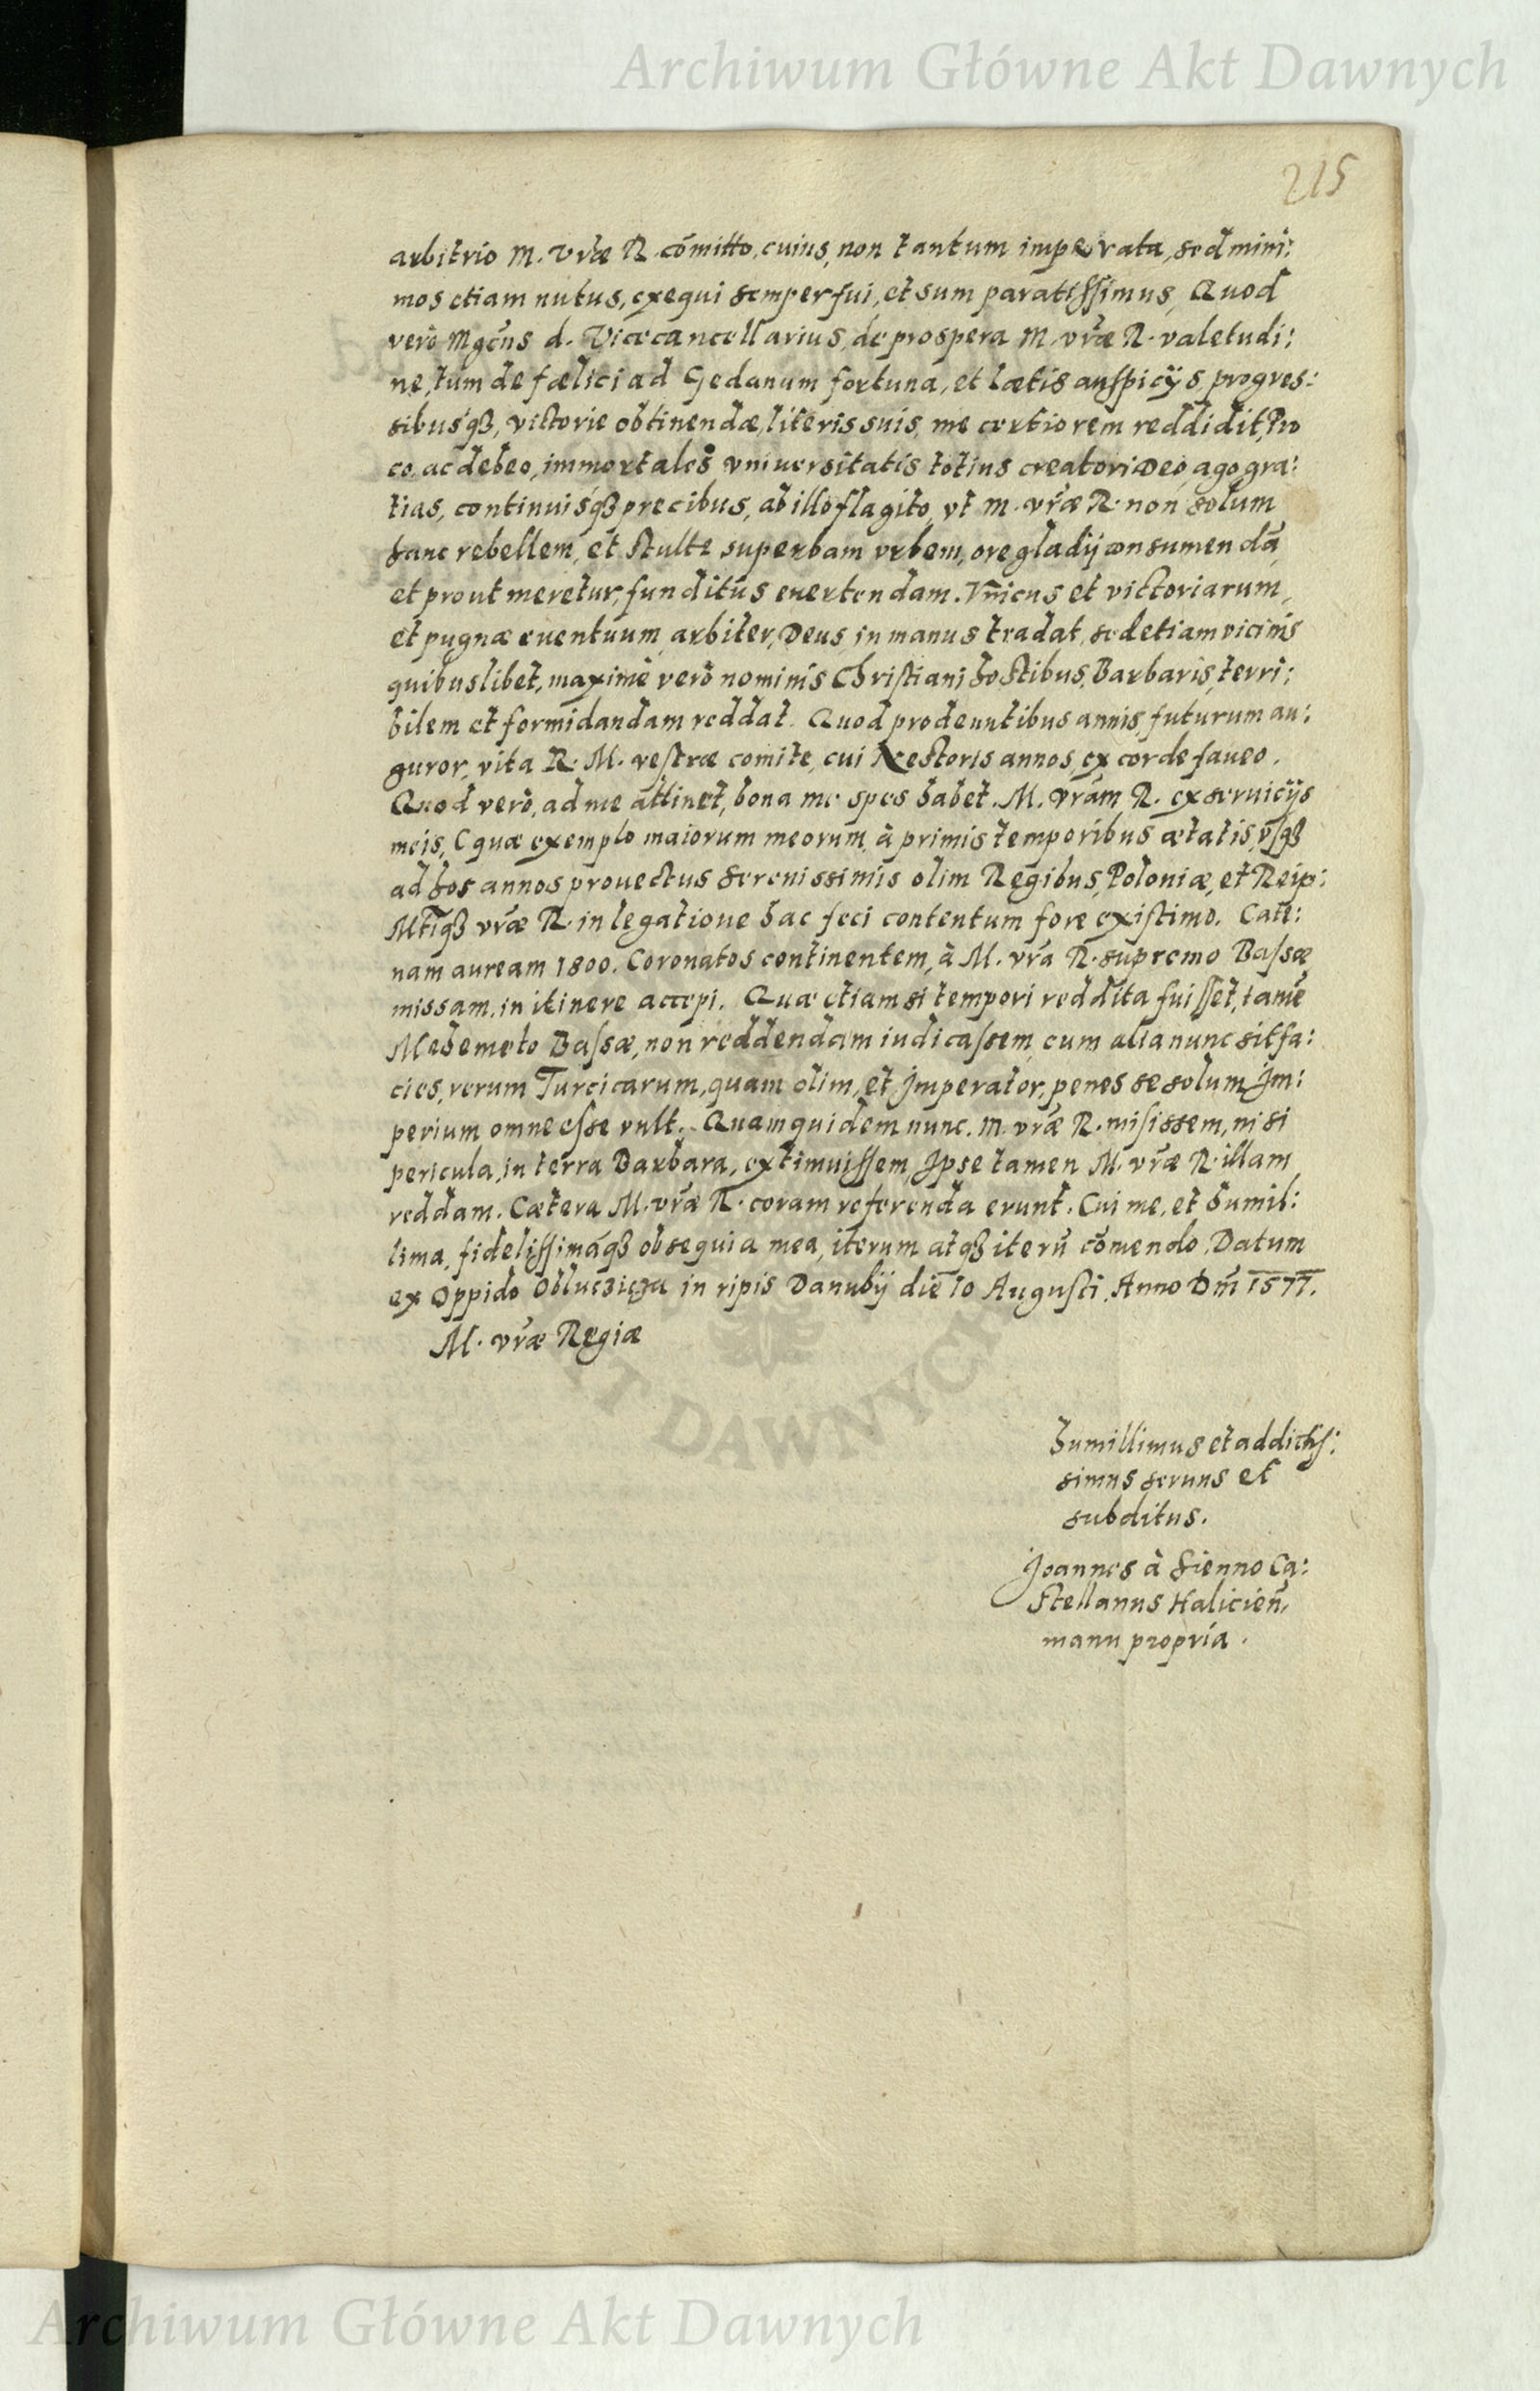 Archiwum Główne Akt Dawnych
215
arbitrio M. vrãe R. cõmitto, cuius, non tantum imperata, sed mini:
mos etiam nutus, exequi semper fui, et sum paratissimus, Quod
verò Mgcñs d. Vicecancellarius, de prospera M. vrãe R. valetudi:
ne, tum de fœlici ad Gedanum fortuna, et lætis auspicÿs, progres:
sibusq́ꝫ, victorie obtinendæ, literis suis, me certiorem reddidit, Pro
eo, ac debeo, immortales vniuersitatis totius creatori Deo, ago gra:
tias, continuisq́ꝫ precibus, ab illo flagito, vt M. vrãe R. non solum
hanc rebellem, et stulte superbam vrbem, ore gladÿ consumendã,
et prout meretur, funditùs euertendam. Vnicus et victoriarum,
et pugnæ euentuum, arbiter, Deus, in manus tradat, sed etiam vicinis
quibuslibet, maximè verò nominis Christiani hostibus, Barbaris, terri:
bilem et formidandam reddat. Quod prodeuntibus annis, futurum au:
guror, vita R. M. vestræ comite, cui Nestoris annos, ex corde faueo.
Quod verò, ad me attinet, bona me spes habet. M. vrãm R. ex seruicÿs
meis, (quæ exemplo maiorum meorum, à primis temporibus ætatis, vsq́ꝫ
ad hos annos prouectus serenissimis olim Regibus, Poloniæ, et Reip:
Mtĩqꝫ vrãe R. in legatione hac feci contentum fore existimo. Cate:
nam auream 1800. Coronatos continentem, à M. vrã R. supremo Bassæ
missam, in itinere accepi. Quæ etiam si tempori reddita fuisset, tamẽ
Mehemeto Bassæ, non reddendam iudicassem, cum alia nunc sit fa:
cies, rerum Turcicarum, quam olim, et Imperator, penes se solum Im:
perium omne esse vult. Quam quidem nunc. M. vrãe R. misissem, ni si
pericula, in terra Barbara, extimuissem, Ipse tamen M. vrãe R. illam
reddam. Cætera M. vrãe R. coram referenda erunt. Cui me, et humil:
lima, fidelissimáqꝫ obsequia mea, iterum atqꝫ iterũ cõmendo, Datum
ex Oppido Obluczicza in ripis Danubÿ die 10 Augusti. Anno Dm̃ 1577.
M. vrãe Regiæ
humillimus et addictis:
simus seruus et
subditus.
Joannes à Sienno Ca:
stellanus Haliciẽn,
manu propria.
AKT DAWNYCH
Archiwum Główne Akt Dawnych